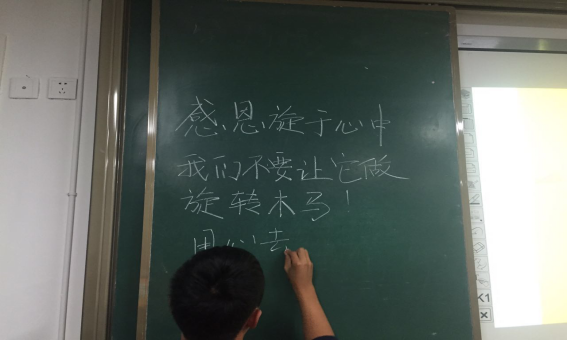 感恩旋于心中
我们不要让它做
旋转木马！
用心去
K1